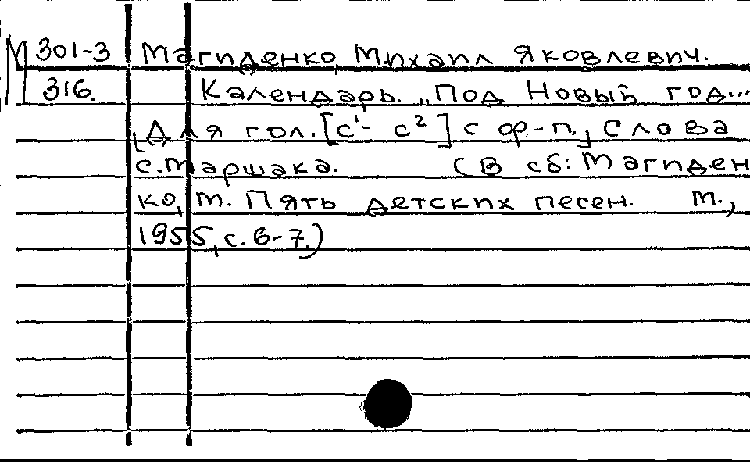 М 301-3 Магиденко, Михаил Яковлевич.
316. Календарь. „Под Новый год...
Для гол. [c¹- c²] с ф-п., Слова
С. Маршака. (В сб: Магиден
ко, М. Пять детских песен. М.,
1955, с. 6-7.)